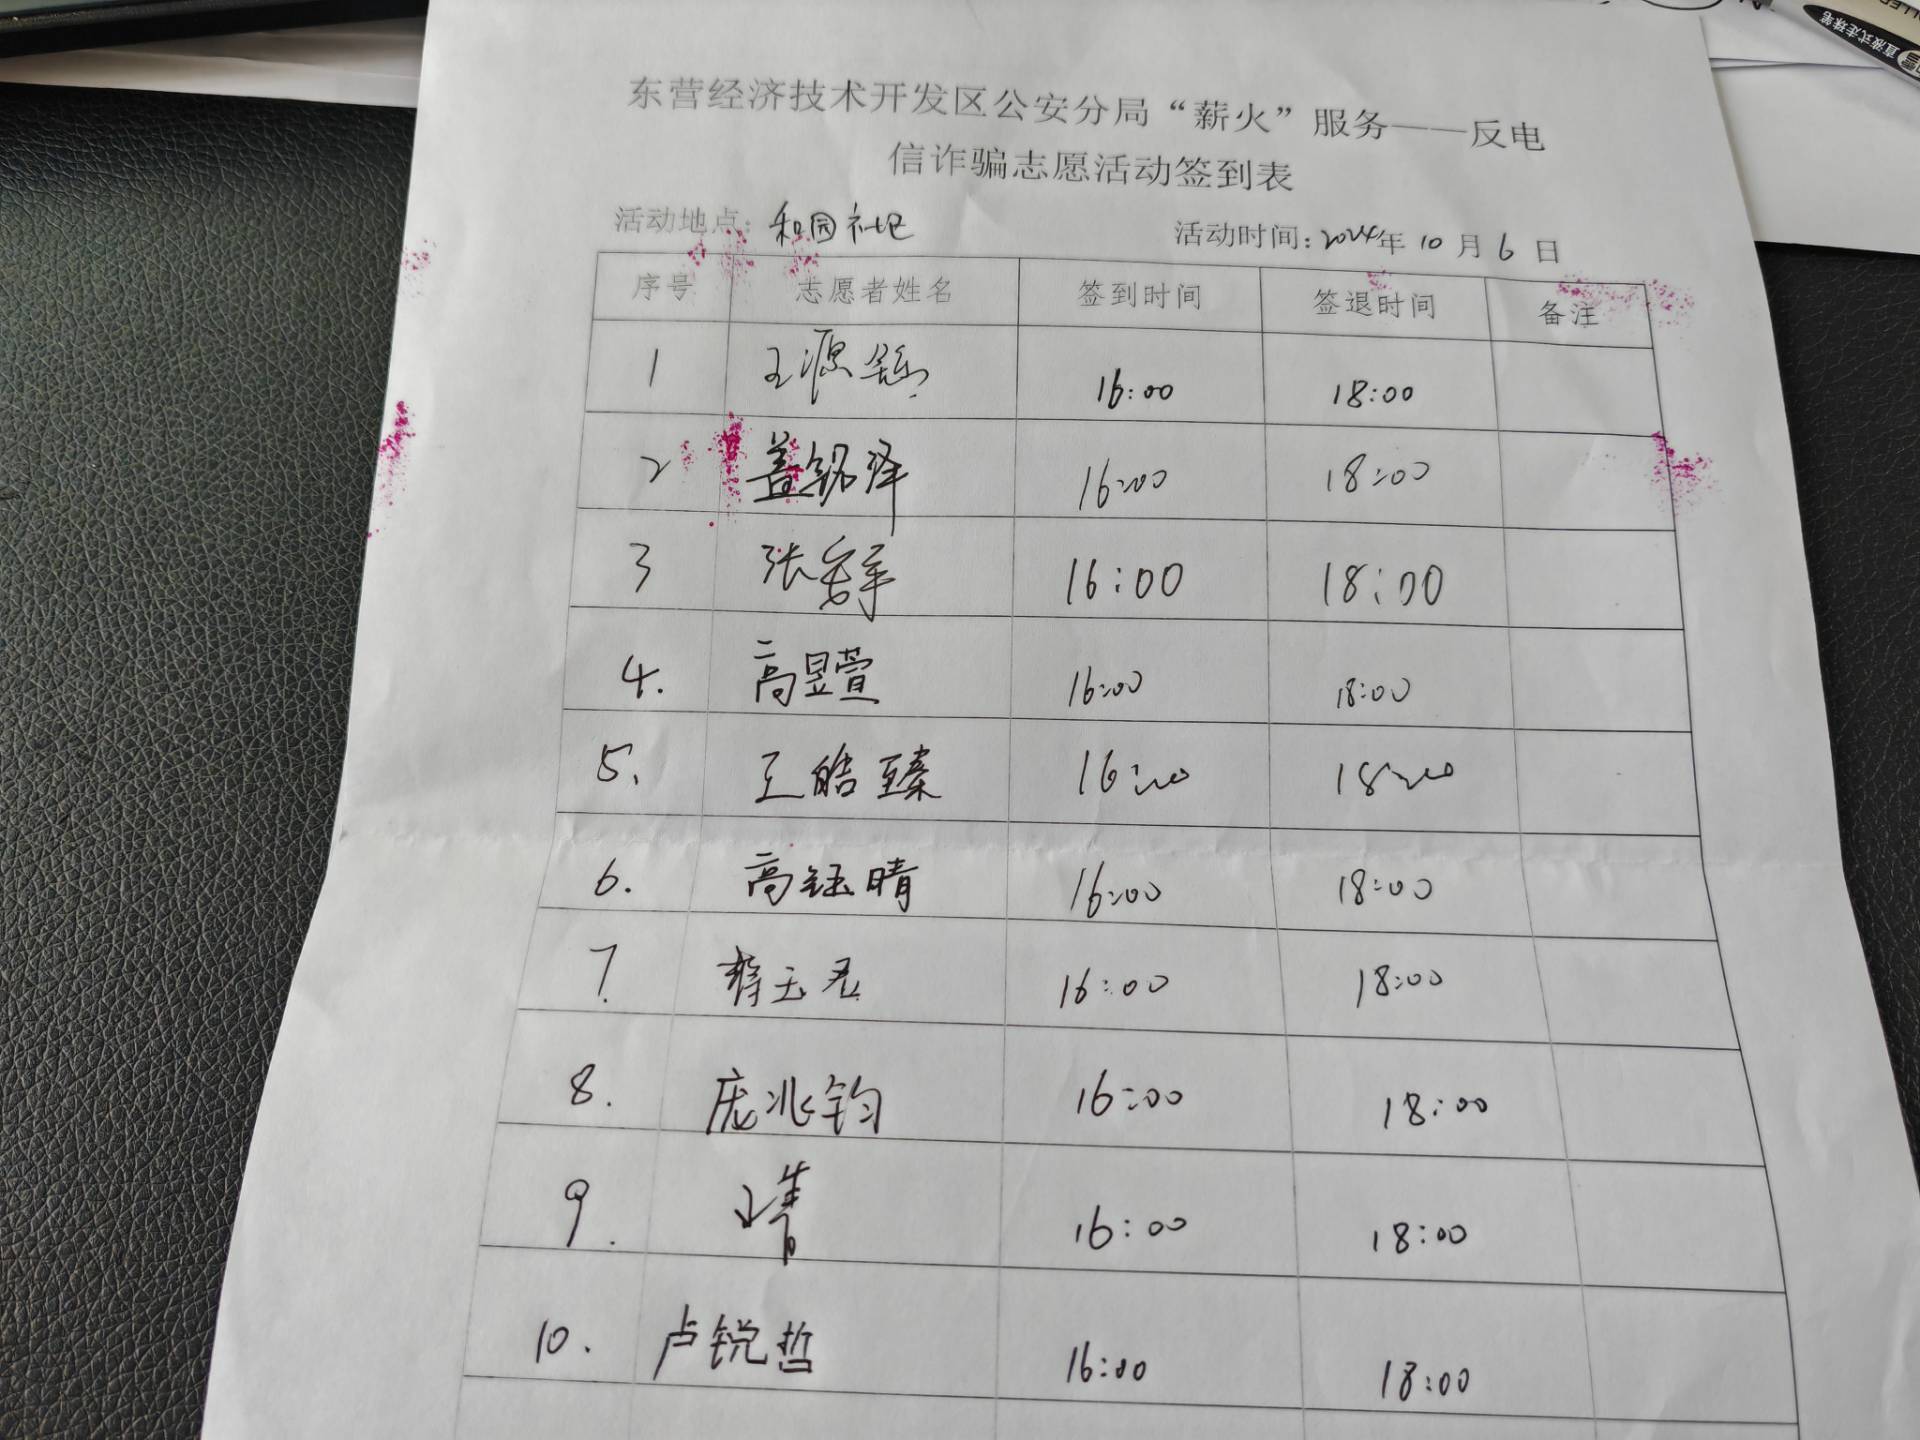 直液式走珠笔
东营经济技术开发区公安分局“薪火”服务——反电
信诈骗志愿活动签到表
活动地点：和园社区 活动时间：2024年10月6日
序号 志愿者姓名 签到时间 签退时间 备注
1 王源 16:00 18:00
2 盖铭泽 16:00 18:00
3 张 16:00 18:00
4. 高昱萱 16:00 18:00
5. 王皓臻 16:00 18:00
6. 高钰晴 16:00 18:00
7. 玉 16:00 18:00
8. 庞兆钧 16:00 18:00
9. 王 16:00 18:00
10. 卢锐哲 16:00 18:00